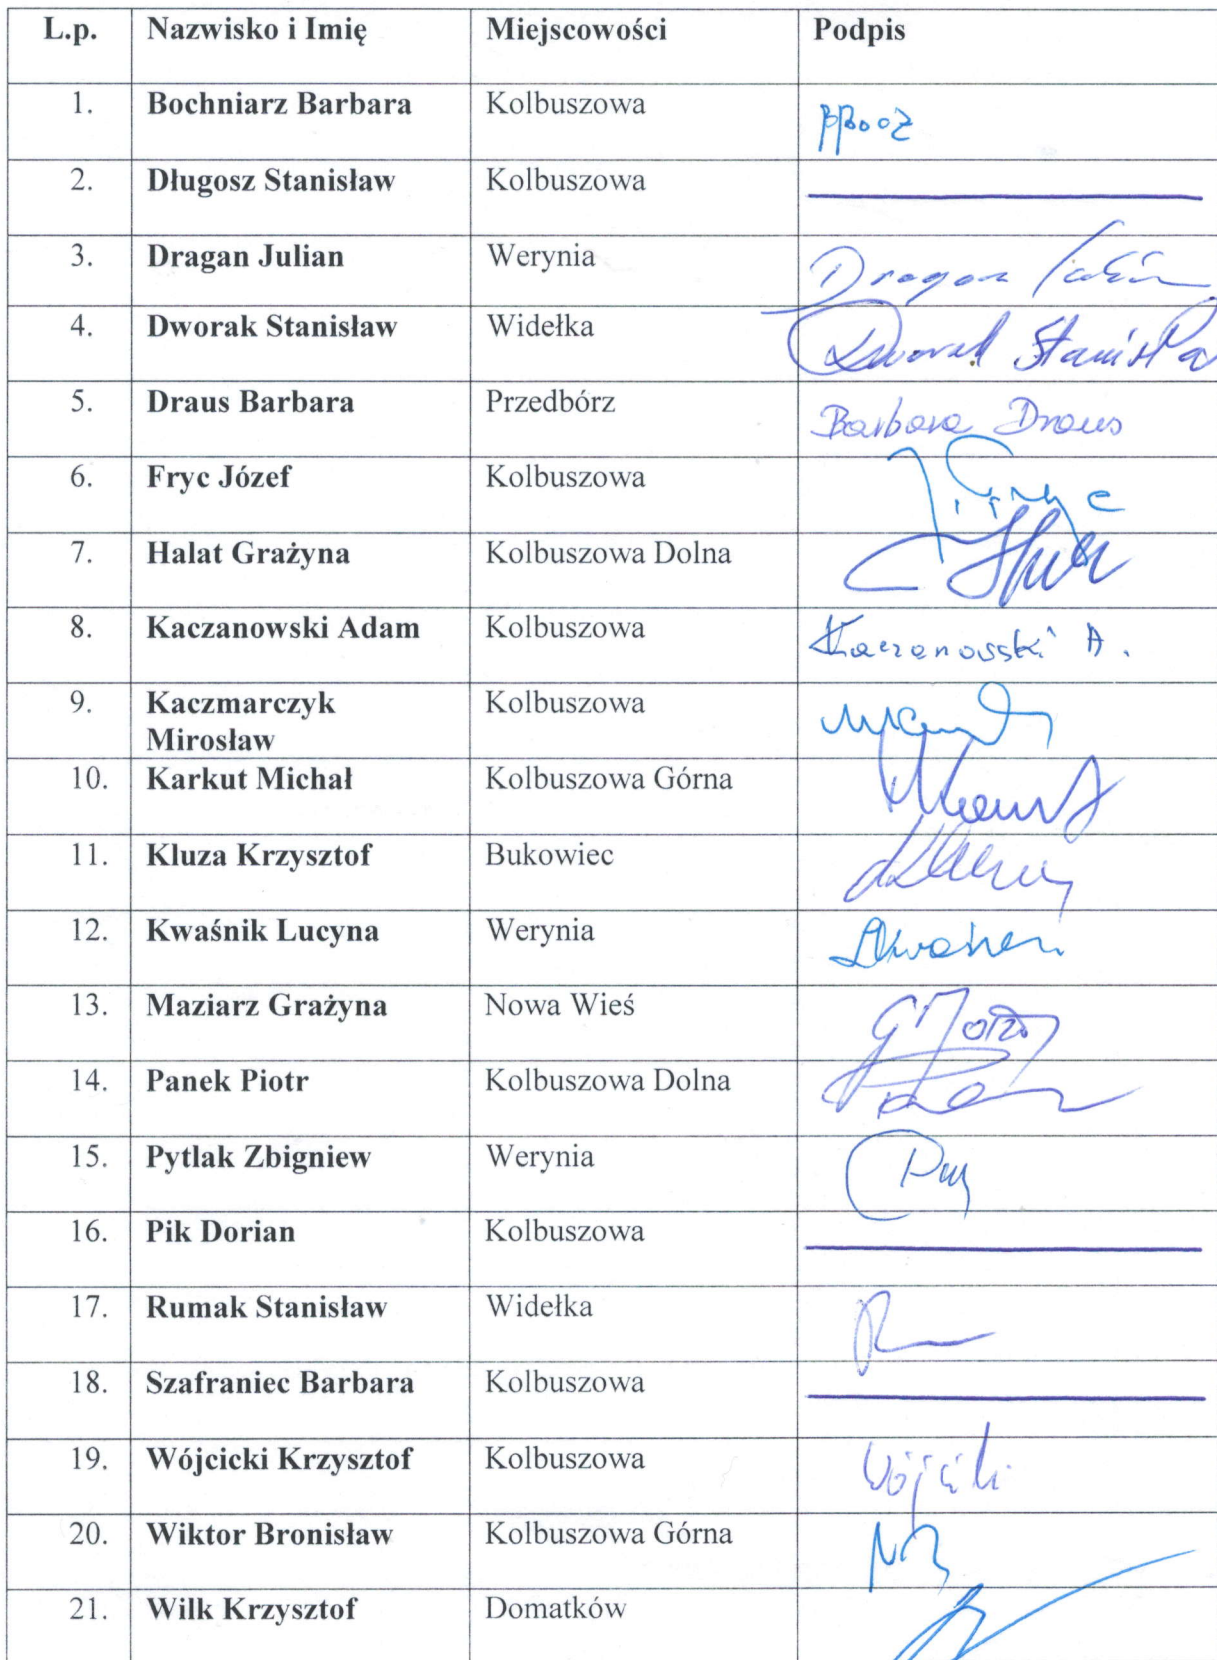 L.p. Nazwisko i Imię Miejscowości Podpis
1. Bochniarz Barbara Kolbuszowa
2. Długosz Stanisław Kolbuszowa
3. Dragan Julian Werynia Dragan Julian
4. Dworak Stanisław Widełka Dworak Stanisła
5. Draus Barbara Przedbórz Barbara Draus
6. Fryc Józef Kolbuszowa
7. Halat Grażyna Kolbuszowa Dolna
8. Kaczanowski Adam Kolbuszowa Kaczanowski A.
9. Kaczmarczyk Kolbuszowa
Mirosław
10. Karkut Michał Kolbuszowa Górna
11. Kluza Krzysztof Bukowiec
12. Kwaśnik Lucyna Werynia
13. Maziarz Grażyna Nowa Wieś
14. Panek Piotr Kolbuszowa Dolna
15. Pytlak Zbigniew Werynia
16. Pik Dorian Kolbuszowa
17. Rumak Stanisław Widełka
18. Szafraniec Barbara Kolbuszowa
19. Wójcicki Krzysztof Kolbuszowa
20. Wiktor Bronisław Kolbuszowa Górna
21. Wilk Krzysztof Domatków